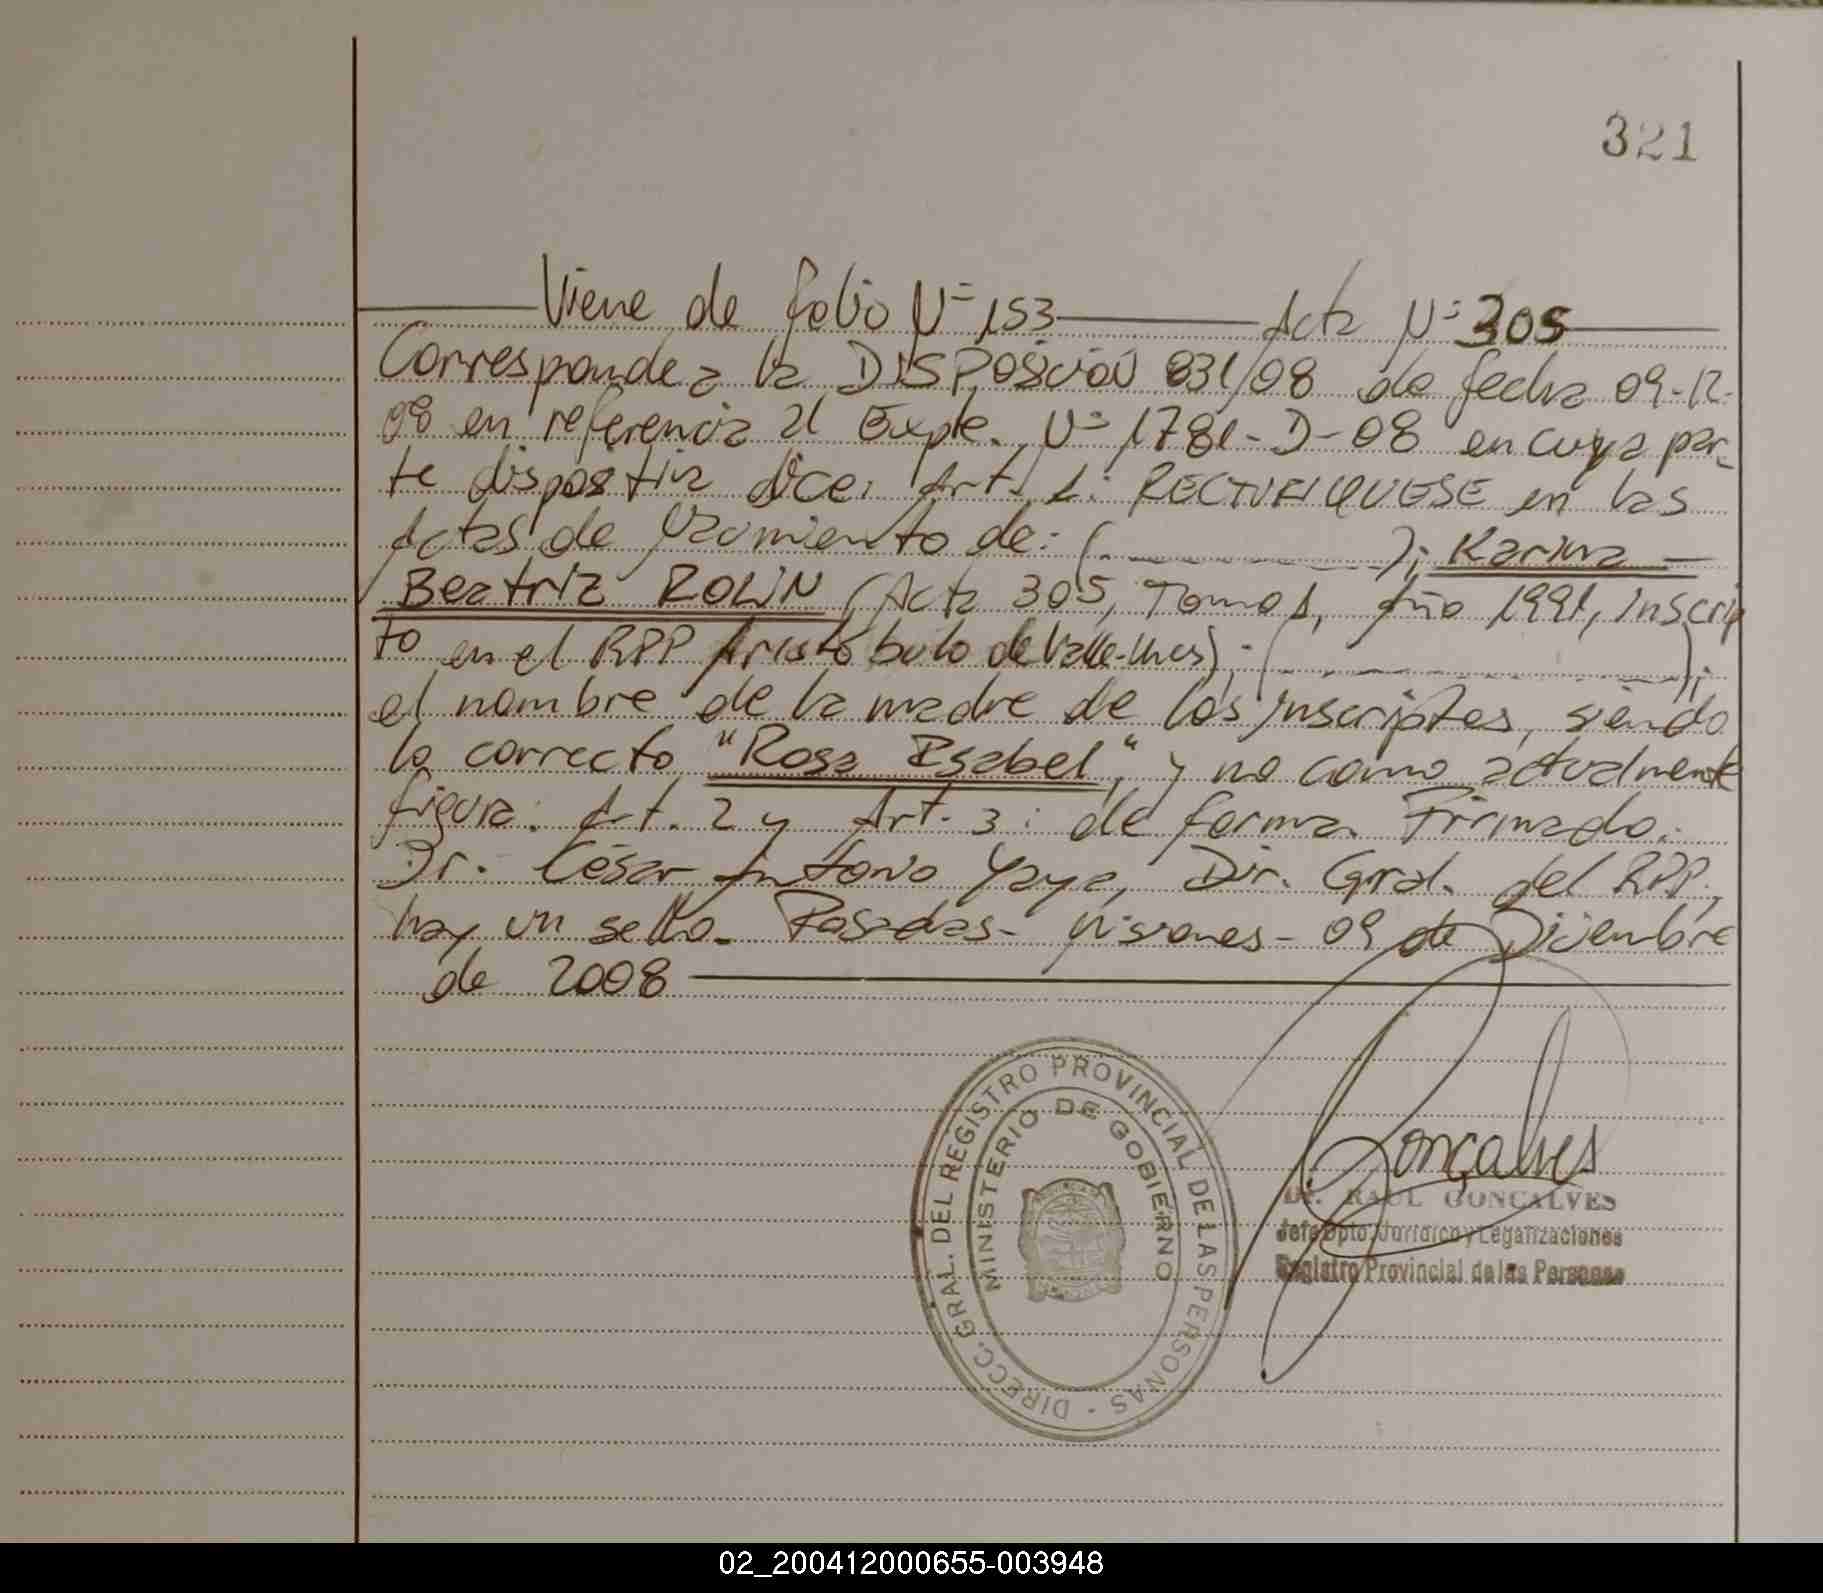 321
Viene de folio Nº 153 Acta Nº 305
Corresponde a la DISPOSICIÓN 831/08 de fecha 09-12-
08 en referencia al Expte. Nº 1781-D-08 en cuya par-
te dispositiva dice: Art. 1: RECTIFIQUESE en las
Actas de Nacimiento de: ( ); Karina
Beatriz ROLIN (Acta 305, Tomo 1, Año 1991, inscrip
to en el RPP Aristóbulo del Valle-Mnes); ( );
el nombre de la madre de los inscriptos, siendo
lo correcto "Rosa Isabel", y no como actualmente
figura. Art. 2 y Art. 3: de forma. Firmado:
Dr. César Antonio Yaya, Dir. Gral. del RPP,
hay un sello. Posadas- Misiones- 09 de Diciembre
de 2008
DIRECC. GRAL. DEL REGISTRO PROVINCIAL DE LAS PERSONAS -
MINISTERIO DE GOBIERNO
Gonçalves
Dr. RAUL GONCALVES
Jefe Dpto. Jurídico y Legalizaciones
Registro Provincial de las Personas
02_200412000655-003948